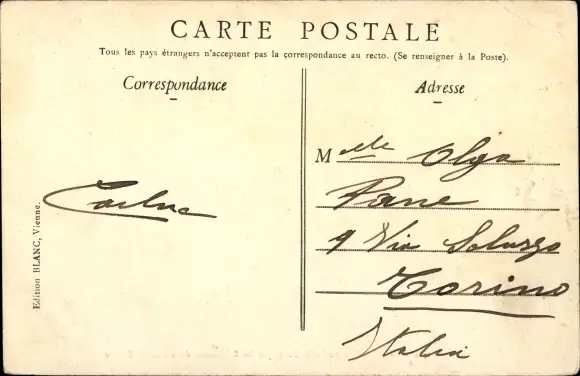 CARTE POSTALE
Tous les pays étrangers n'acceptent pas la correspondance au recto. (Se renseigner à la Poste).
Correspondance
Edition BLANC, Vienne.
Adresse
Melle Olga
9 Via Saluzzo
Torino
Italia